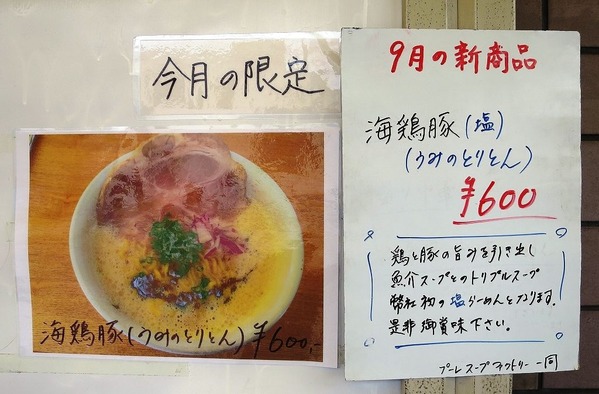 今月の限定
海鶏豚(うみのとりとん)¥600,-
9月の新商品
海鶏豚(塩)
(うみのとりとん)
¥600
鶏と豚の旨みを引き出し
魚介スープとのトリプルスープ
弊社初の塩らーめんとなります。
是非御賞味下さい。
プーレスープファクトリー 一同